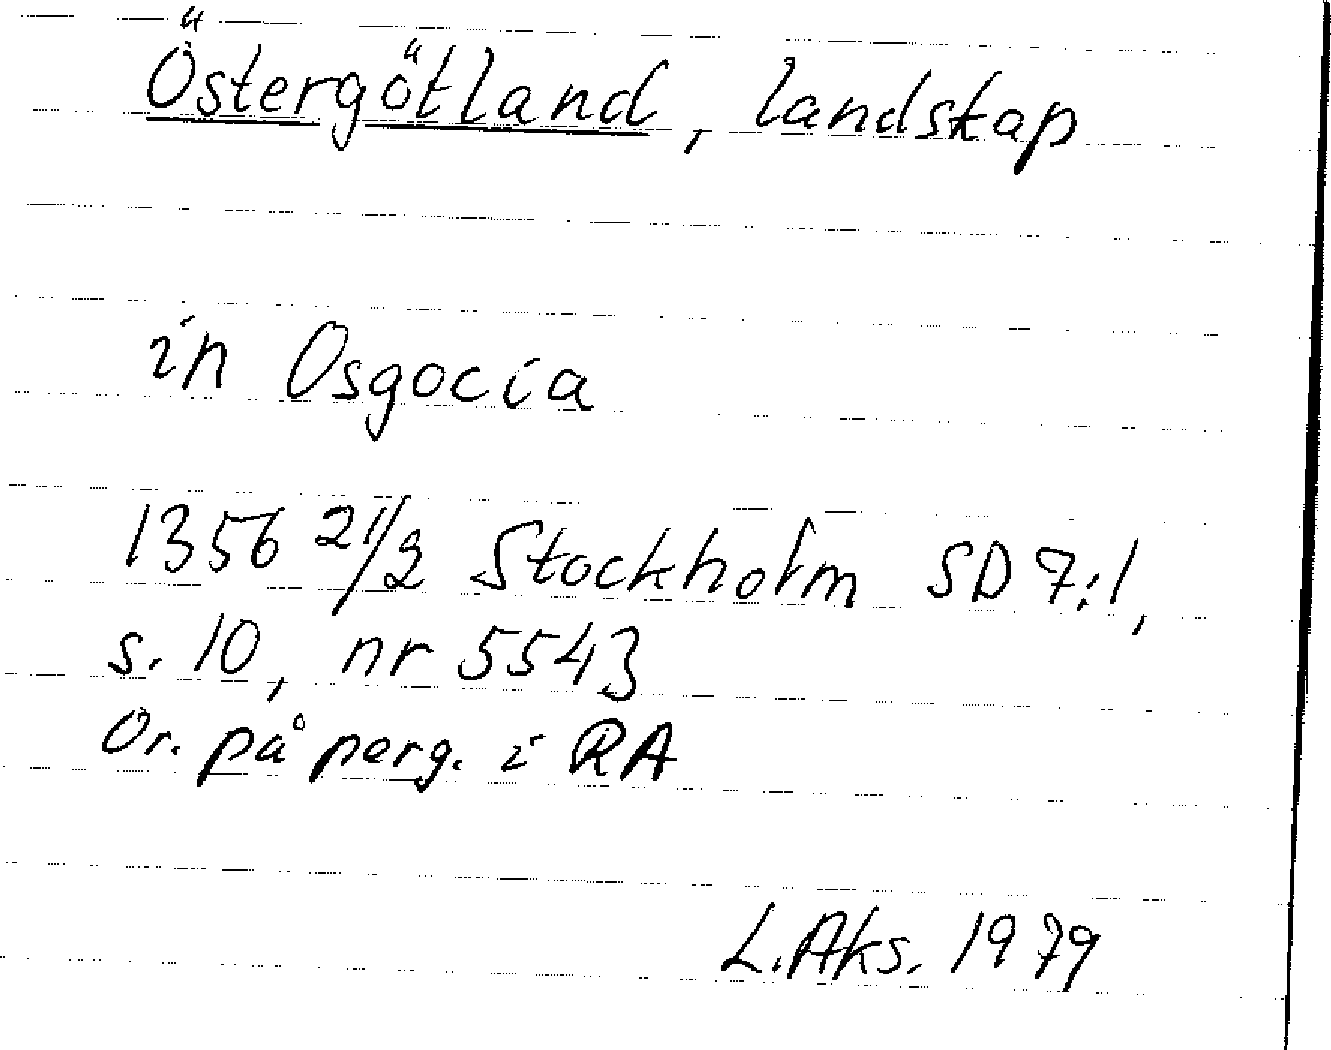 Östergötland, landskap
in Osgocia
1356 21/2 Stockholm SD 7:1,
s. 10, nr 5543
Or. på perg. i RA
L. Aks. 1979